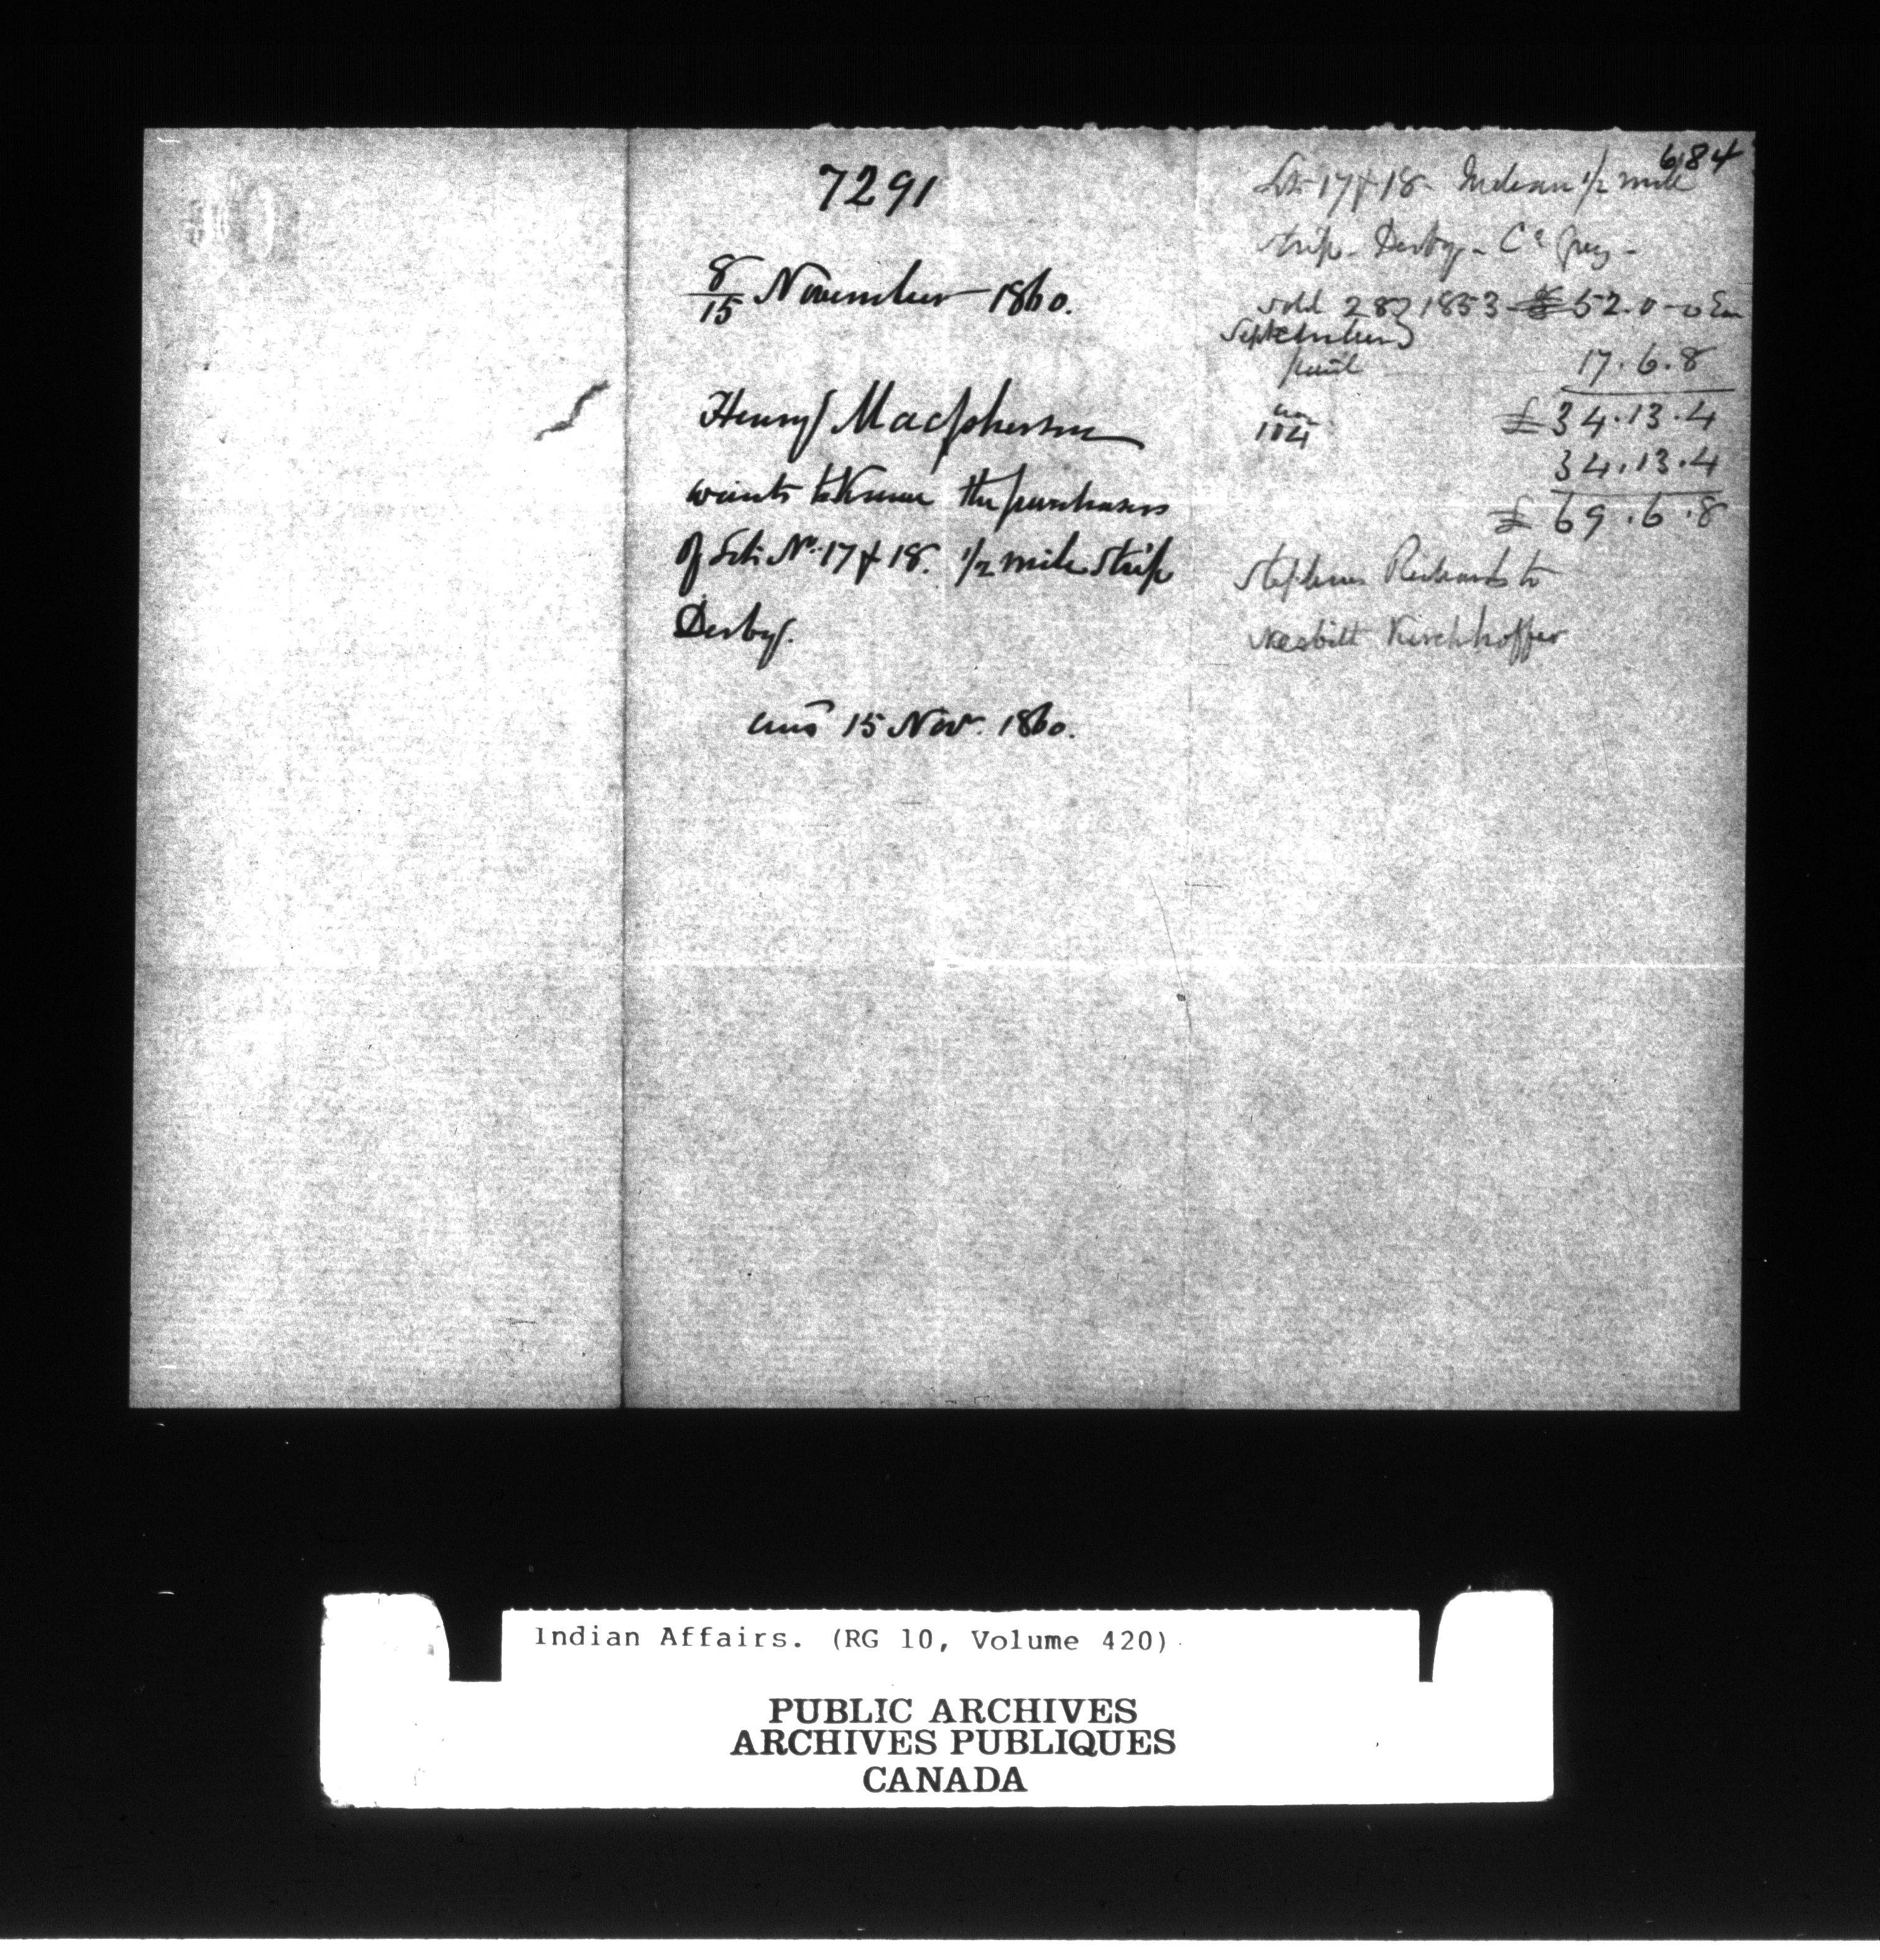 7291
8/15 November 1860.
Henry Macpherson
wants to Know the purchasers
of Lots No. 17 & 18. 1/2 mile Strip
Derby.
ans 15 Nov. 1860.
684
Lots 17 & 18 Indian 1/2 mile
Strip - Derby - Co Grey -
sold 28 1853 52.0-0 Ea
September
paid 17.6.8
£34.13.4
34.13.4
£69.6.8
Stephen Richards to
Nesbitt Kirchhoffer
Indian Affairs. (RG 10, Volume 420)
PUBLIC ARCHIVES
ARCHIVES PUBLIQUES
CANADA